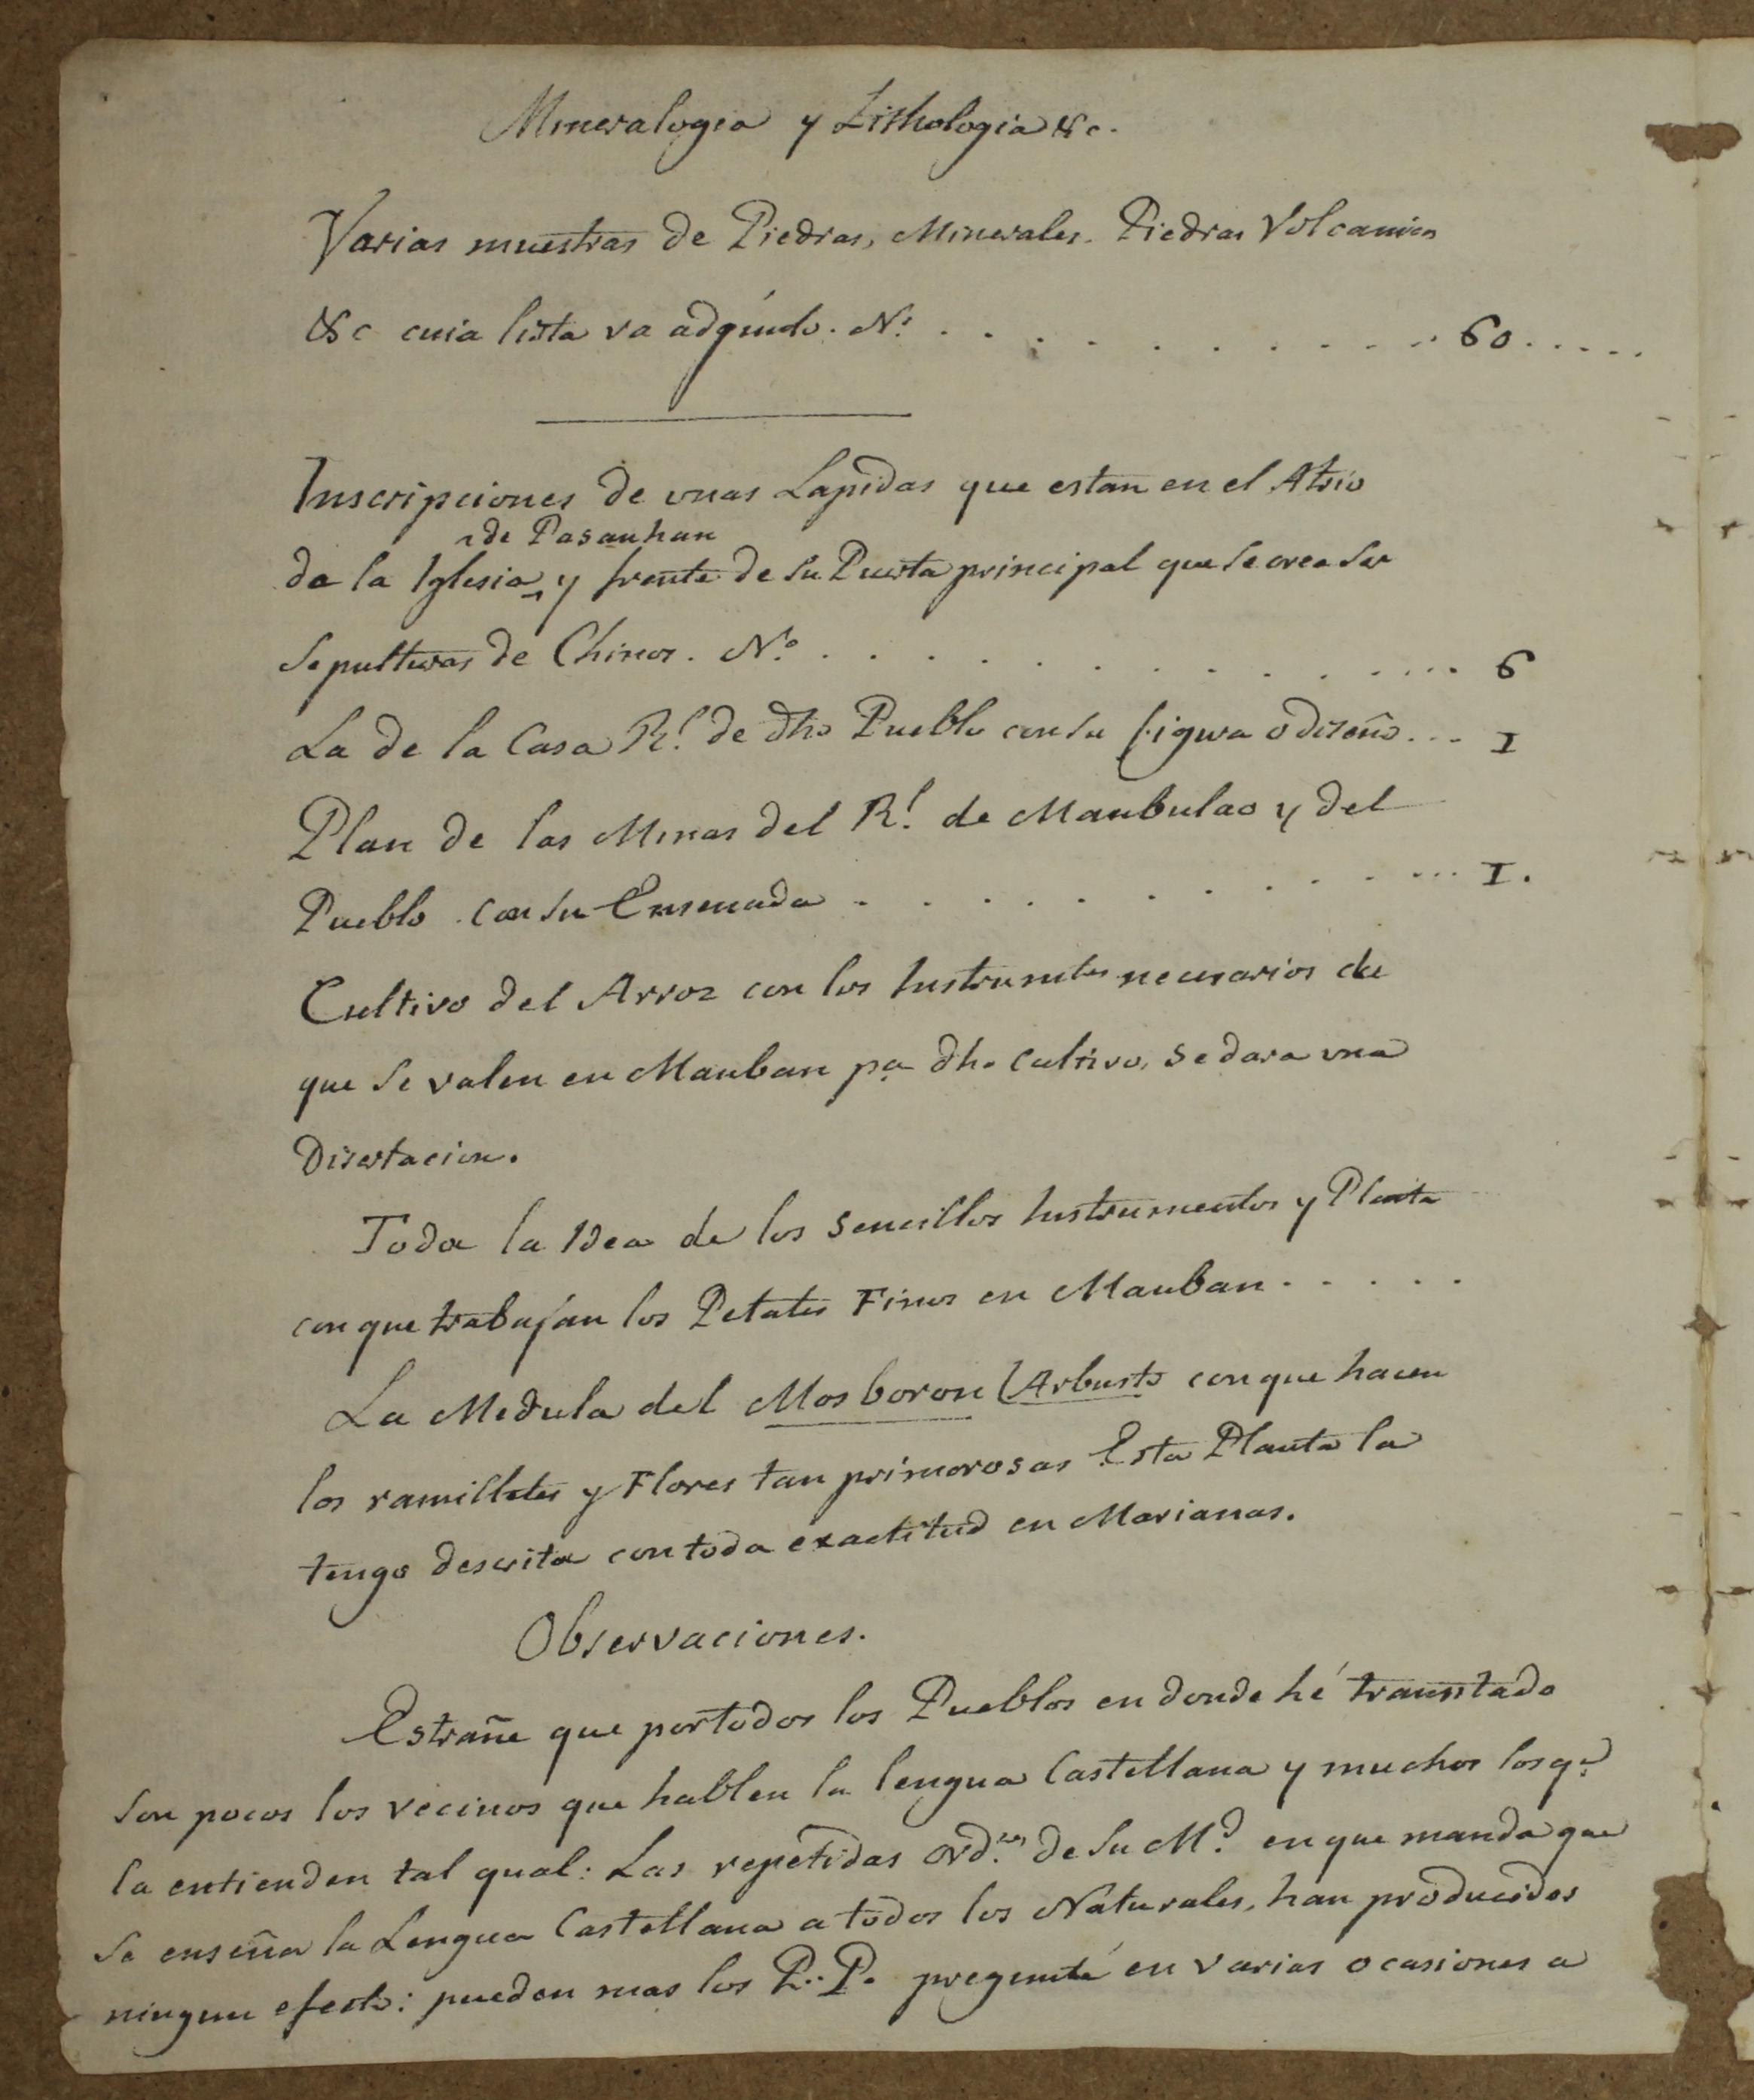 Mineralogia y Lithologia &c.
Varias muestras de Piedras, Minerales. Piedras Volcanicas
&c cuia lista va adjunto. N.º . . . . . . . . . . 60 . . . . .
Inscripciones de unas Lapidas que estan en el Atrio
de Pasanhan
de la Iglesia y frente de su Puerta principal que se cree ser
sepulturas de Chinos. N.º . . . . . . . . . . . . 6
La de la Casa R.l de dho Pueblo con su figura o diseño . . . I
Plan de las Minas del R.l de Manbulao y del
Pueblo con su Ensenada . . . . . . . . . . . I.
Cultivo del Arroz con los Instrumtos necesarios de
que se valen en Mauban pa dho Cultivo, se dara una
Disertacion.
Toda la Idea de los sencillos Instrumentos y Planta
con que trabajan los Petates Finos en Mauban . . . . .
La Medula del Mosboron (Arbusto con que hacen
los ramilletes y Flores tan primorosas Esta Planta la
tengo descrita con toda exactitud en Marianas.
Observaciones.
Estrañe que por todos los Pueblos en donde hé transitado
son pocos los vecinos que hablen la lengua Castellana y muchos los q.e
la entienden tal qual: Las repetidas ord.nes de su M.d en que manda que
se enseña la Lengua Castellana a todos los Naturales, han producidos
ningun efecto: pueden mas los P.. P. pregunté en varias ocasiones a